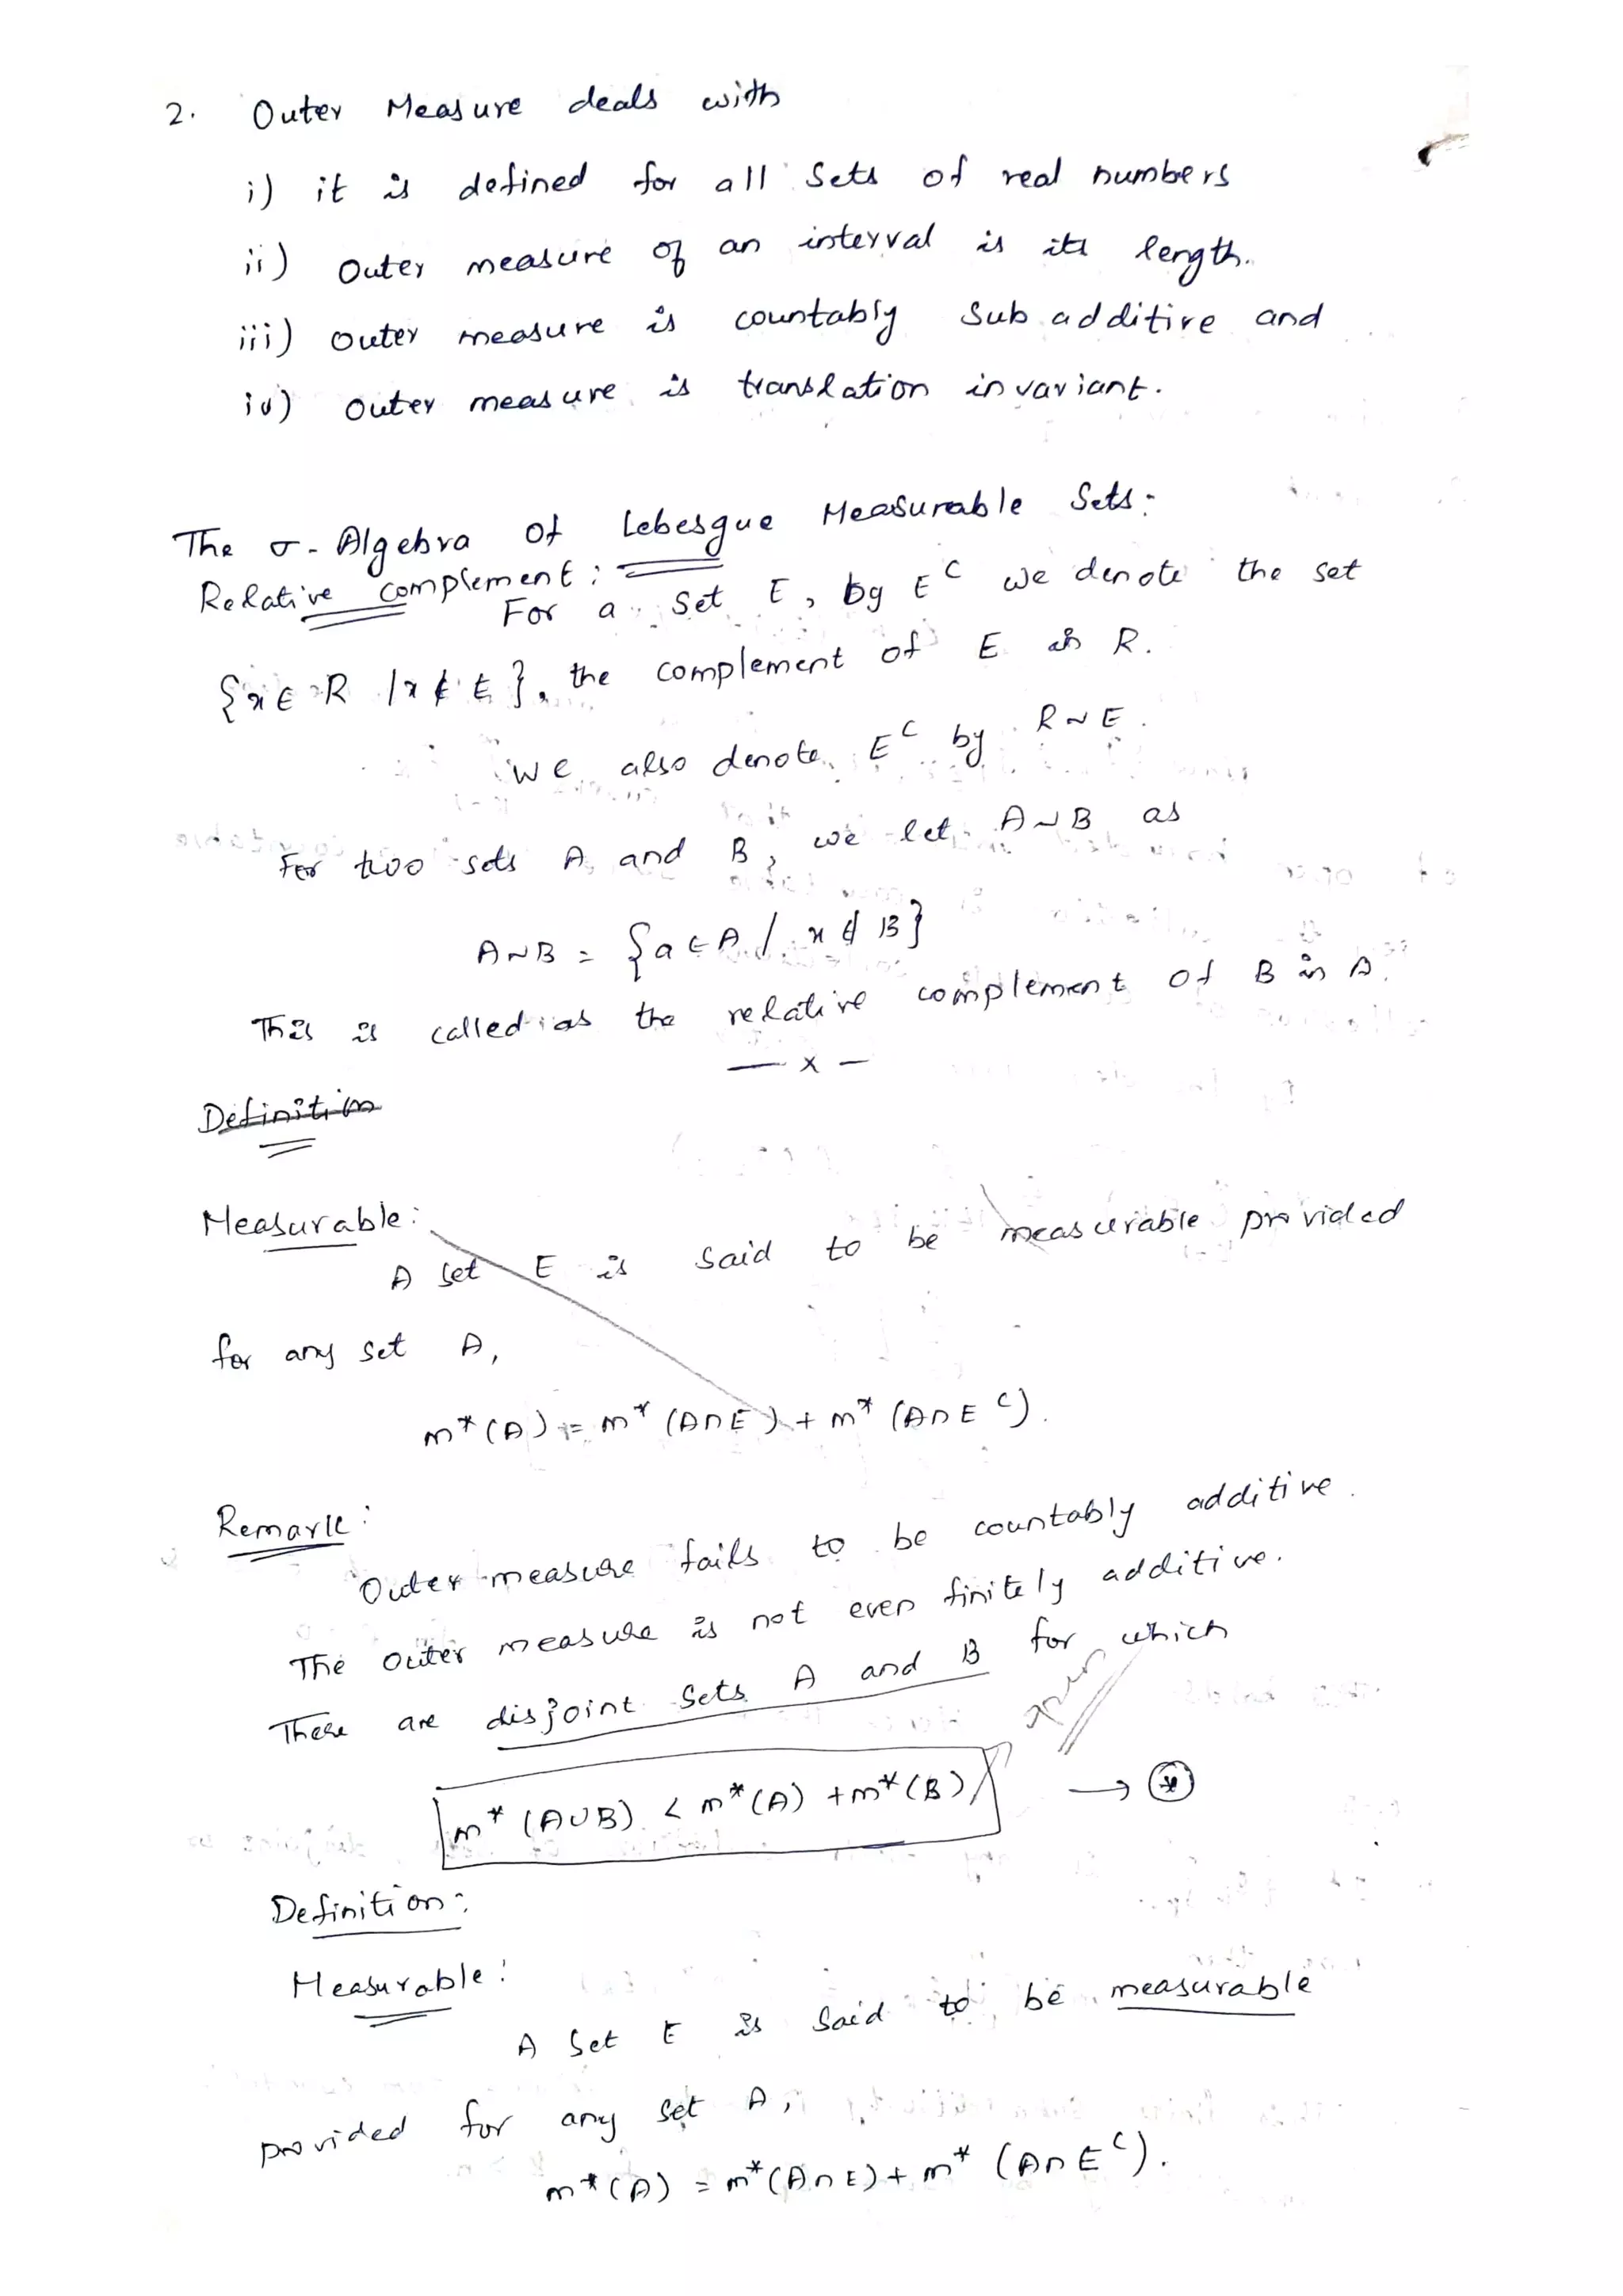 2. Outer Measure deals with
i) it is defined for all Sets of real numbers
ii) Outer measure of an interval is its length.
iii) Outer measure is countably Sub additive and
iv) Outer measure is translation invariant.
The σ-Algebra of Lebesgue Measurable Sets:
Relative complement:
For a Set E, by E^C we denote the set
{x ∈ R / x ∉ E}, the complement of E in R.
We also denote E^C by R ~ E.
For two sets A and B, we let A ~ B as
A ~ B = {a ∈ A / x ∉ B}
This is called as the relative complement of B in A.
— x —
Definition
Measurable:
A Set E is Said to be measurable provided
for any set A,
m*(A) = m*(A∩E) + m*(A∩E^C).
Remark:
Outer measure fails to be countably additive.
The outer measure is not even finitely additive.
There are disjoint Sets A and B for which
m*(A∪B) < m*(A) + m*(B) → (*)
Definition:
Measurable:
A Set E is Said to be measurable
provided for any set A,
m*(A) = m*(A∩E) + m*(A∩E^C).